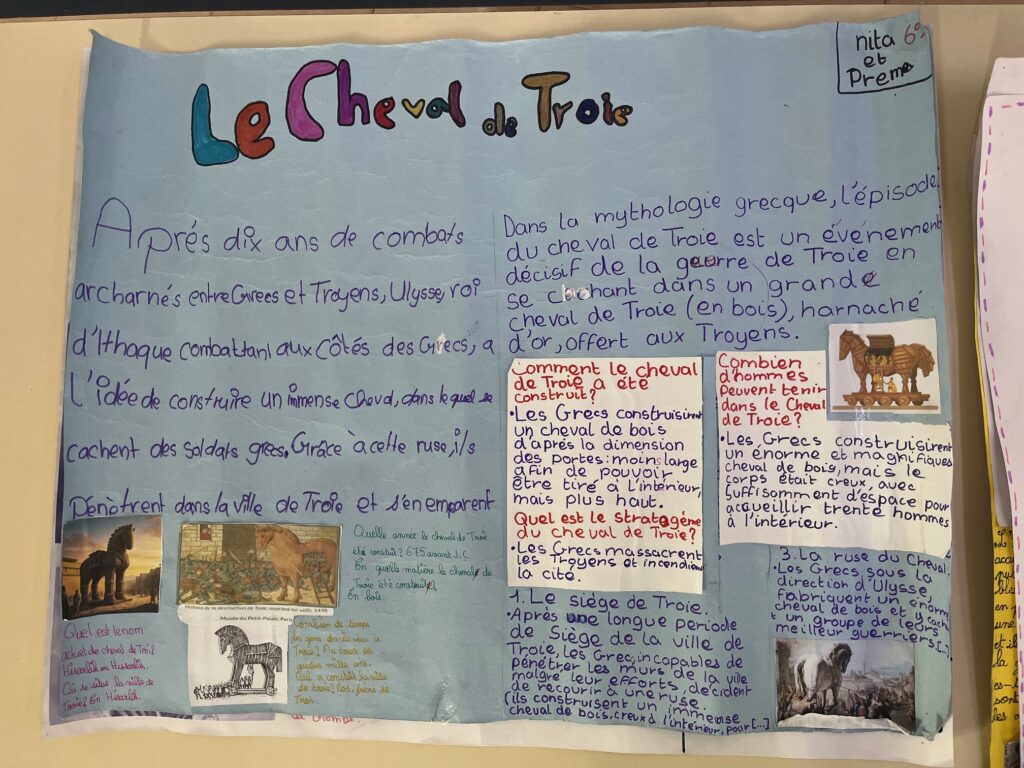 Le Cheval de Troie
nita 6e
et
Prema
Aprés dix ans de combats
archarnés entre Grecs et Troyens, Ulysse, roi
d'Ithaque combattant aux côtés des Grecs, a
L'idée de construire un immense cheval, dans le quel se
cachent des soldats grecs. Grâce à cette ruse, ils
Pénètrent dans la ville de Troie et s'en emparent
Quelle année le cheval de Troie
été construit? 675 avant J.C
En quelle matière le cheval de
Troie été construit
En bois.
Histoire de la destruction de Troie, imprimé sur vélin, 1498
Musée du Petit-Palais, Paris
Quel est le nom
actuel de cheval de Troi?
Hissarlik ou Hissarlik.
Où se situe la ville de
Troie? En Hisarlik.
Combien de temps
les gens
Troie? Au cours de
quatre mille ans.
Qui a construit la ville
de troie? Ilos, frère de
Tros.
Dans la mythologie grecque, l'épisode
du cheval de Troie est un événement
décisif de la geurre de Troie en
se cachant dans un grande
cheval de Troie (en bois), harnaché
d'or, offert aux Troyens.
Comment le cheval
de Troie a été
construit?
•Les Grecs construisirent
un cheval de bois
d'aprés la dimension
des portes: moin: large
afin de pouvoir
être tiré à l'intérieur,
mais plus haut.
Quel est le stratagéme
du cheval de Troie?
•Les Grecs massacrent
les Troyens et incendient
la cité.
Combien
d'hommes
Peuvent tenir
dans le Cheval
de Troie?
•Les Grecs construisirent
un énorme et magnifiques
cheval de bois, mais le
corps était creux, avec
suffisomment d'espace pour
accueillir trente hommes
à l'intérieur.
1. Le siège de Troie.
•Après une longue periode
de Siège de la ville de
Troie, les Grec, incapables de
pénétrer les murs de la ville
malgré leur efforts, décident
de recourir à une ruse.
(ils construisent un immeuse
cheval de bois, creux à l'intérieur, pour [...]
3. La ruse du Cheval,
•Les Grecs sous la
direction d'Ulysse,
fabriquent un énorme
cheval de bois et y cachent
un groupe de leurs
meilleur guerriers [...]